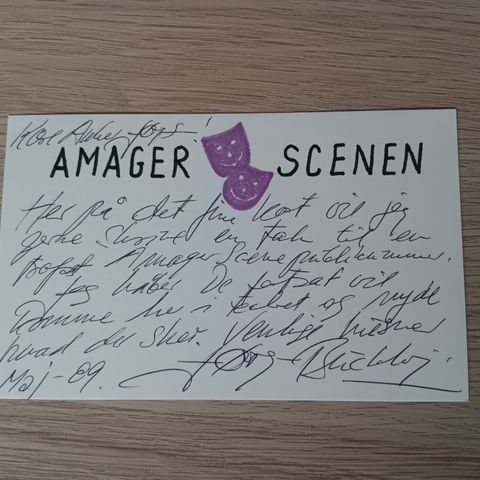 Kære
AMAGER SCENEN
Her på det fine kort vil jeg
gerne skrive en tak til en
Amager Scene publikummer.
Jeg håber De fortsat vil
komme her i teatret og nyde
hvad der sker. Venlige hilsner
Maj - 09.